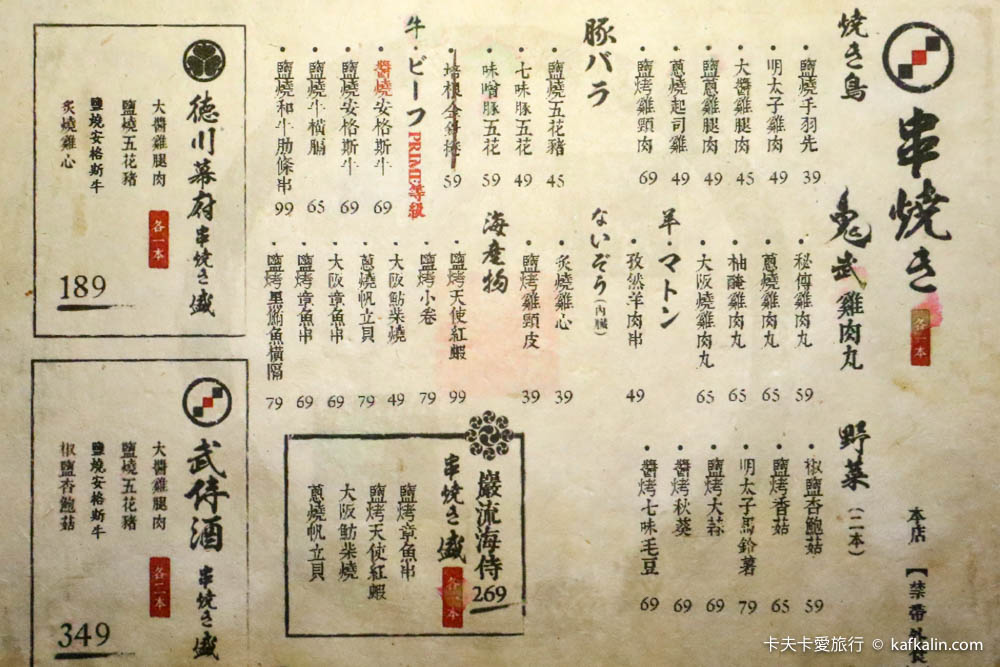 串焼き
各一本
焼き鳥
鹽燒手羽先 39
明太子雞肉 49
大醬雞腿肉 45
鹽蔥雞腿肉 49
蔥燒起司雞 49
鹽烤雞頸肉 69
豚バラ
鹽燒五花豬 45
七味豚五花 49
味噌豚五花 59
培根金針捲 59
牛・ビーフ PRIME等級
醬燒安格斯牛 69
鹽燒安格斯牛 69
鹽燒牛橫膈 65
鹽燒和牛肋條串 99
鬼武雞肉丸
秘傳雞肉丸 59
蔥燒雞肉丸 65
柚醃雞肉丸 65
大阪燒雞肉丸 65
羊・マトン
孜然羊肉串 49
ないぞう(内臓)
炙燒雞心 39
鹽烤雞頸皮 39
海産物
鹽烤天使紅蝦 99
鹽烤小卷 79
大阪魴柴燒 49
蔥燒帆立貝 79
大阪章魚串 69
鹽烤章魚串 69
鹽烤黑鮪魚橫隔 79
野菜(二本)
椒鹽杏鮑菇 59
鹽烤香菇 65
明太子馬鈴薯 79
鹽烤大蒜 69
醬烤秋葵 69
醬烤七味毛豆 69
本店【禁帶外食
巖流海侍
串焼き盛
各一本
269
鹽烤章魚串
鹽烤天使紅蝦
大阪魴柴燒
蔥燒帆立貝
德川幕府串焼き盛
各一本
大醬雞腿肉
鹽燒五花豬
鹽燒安格斯牛
炙燒雞心
189
武侍酒串焼き盛
各二本
大醬雞腿肉
鹽燒五花豬
鹽燒安格斯牛
椒鹽杏鮑菇
349
卡夫卡愛旅行 © kafkalin.com